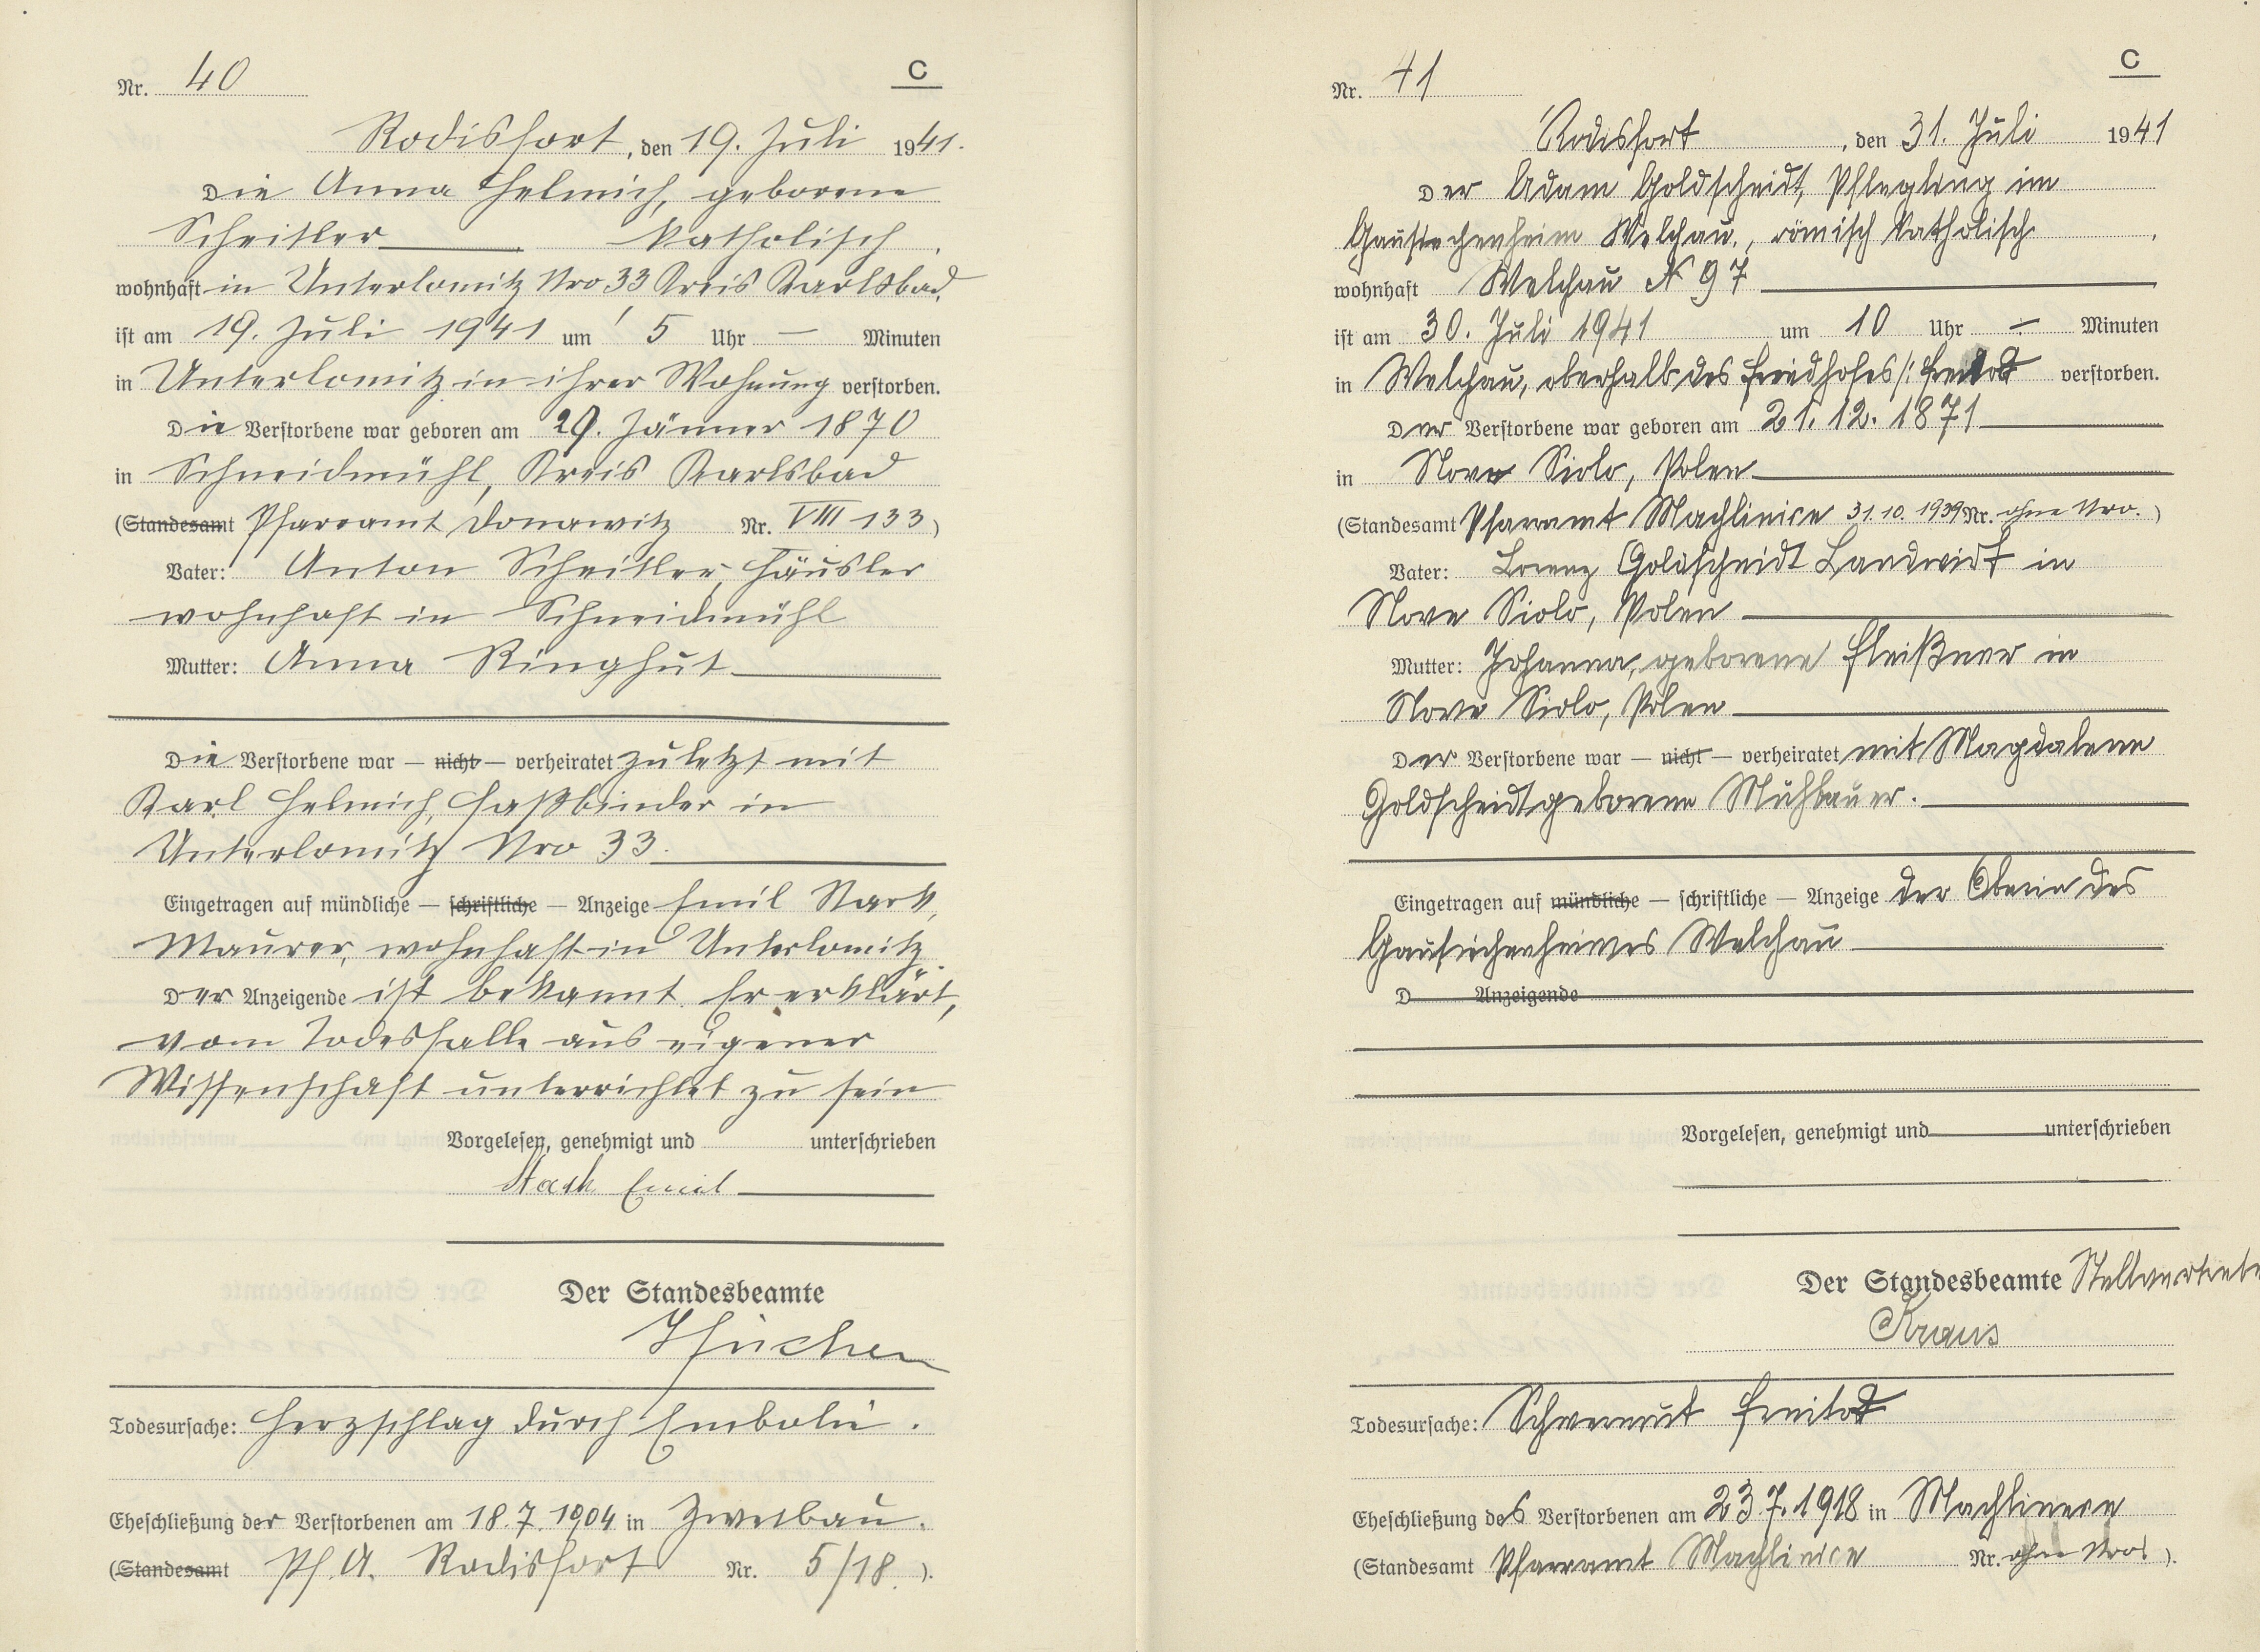 Nr. 40
C
Rodisfort, den 19. Juli 1941.
Die Anna Helmich, geborene
Scheitler katholisch,
wohnhaft in Unterlomitz Nro 33 Kreis Karlsbad,
ist am 19. Juli 1941 um 5 Uhr — Minuten
in Unterlomitz in ihrer Wohnung verstorben.
Die Verstorbene war geboren am 29. Jänner 1870
in Schneidmühl, Kreis Karlsbad
(Standesamt Pfarramt Donawitz Nr. VIII 133)
Vater: Anton Scheitler, Häusler
wohnhaft in Schneidmühl
Mutter: Anna Ringhut
Die Verstorbene war — nicht — verheiratet zuletzt mit
Karl Helmich, Faßbinder in
Unterlomitz Nro 33.
Eingetragen auf mündliche — schriftliche — Anzeige Emil Stark,
Maurer, wohnhaft in Unterlomitz.
Der Anzeigende ist bekannt. Er erklärt,
vom Todesfalle aus eigener
Wissenschaft unterrichtet zu sein
Vorgelesen, genehmigt und unterschrieben
Emil
Der Standesbeamte
Todesursache: Herzschlag durch Embolie.
Eheschließung der Verstorbenen am 18.7.1904 in Zwetbau.
(Standesamt Pf. A. Rodisfort Nr. 5/18.).
Nr. 41
C
Rodisfort, den 31. Juli 1941
Der Adam Goldscheidt, Pflegling im
Gausiechenheim Welchau, römisch katholisch,
wohnhaft Welchau N 97
ist am 30. Juli 1941 um 10 Uhr — Minuten
in Welchau, oberhalb des Friedhofes /: Freitod verstorben.
Der Verstorbene war geboren am 21. 12. 1871
in Nove Siolo, Polen
(Standesamt Pfarramt Machlinice 31.10. 1939 Nr. ohne Nro.)
Vater: Lorenz Goldscheidt Landwirt in
Nove Siolo, Polen
Mutter: Johanna, geborene Fleißner in
Nove Siolo, Polen
Der Verstorbene war — nicht — verheiratet mit Magdalene
Goldscheidt geborene Mühbauer.
Eingetragen auf mündliche — schriftliche — Anzeige der Oberin des
Gausiechenheimes Welchau
D Anzeigende
Vorgelesen, genehmigt und unterschrieben
Der Standesbeamte
Kraus
Todesursache: Schwermut Freitod
Eheschließung des Verstorbenen am 23.7.1918 in Machlinice
(Standesamt Pfarramt Machlinice Nr. ohne Nro).